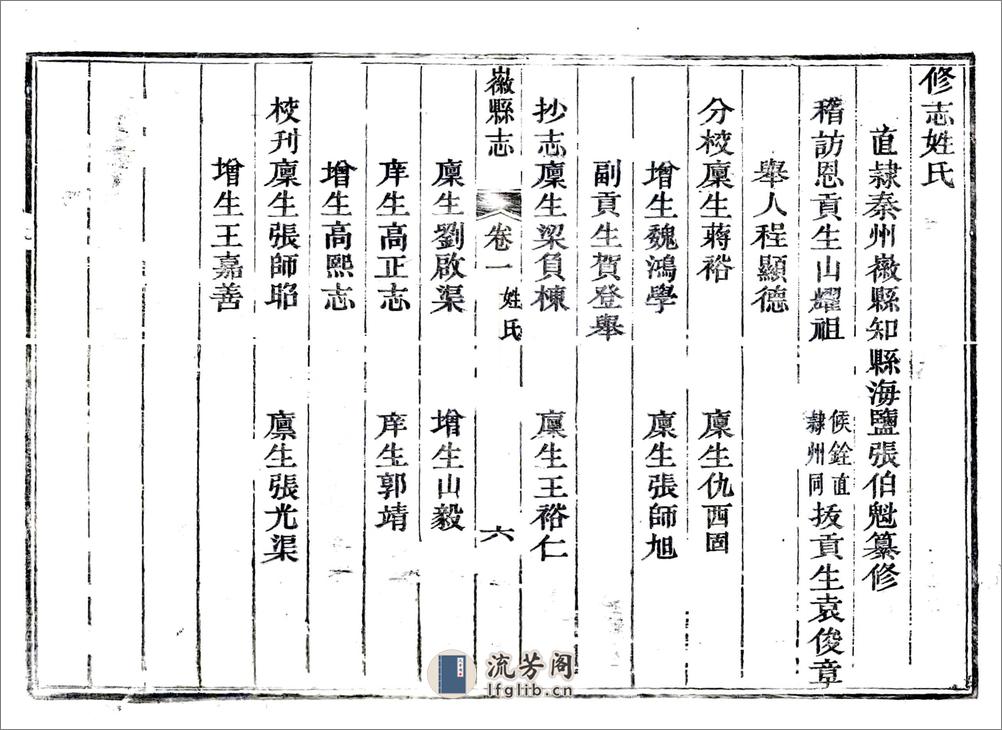 修志姓氏
直隸秦州徽縣知縣海鹽張伯魁纂修
稽訪恩貢生山耀祖 候銓直隸州同 拔貢生袁俊章
舉人程顯德
分校廩生蔣裕 廩生仇西園
增生魏鴻學 廩生張師旭
副貢生賀登舉
抄志廩生梁負棟 廩生王裕仁
徽縣志 卷一 姓氏 六
廩生劉啟渠 增生山毅
庠生高正志 庠生郭靖
增生高熙志
校刊廩生張師昭 廩生張光渠
增生王嘉善
流芳阁
lfglib.cn